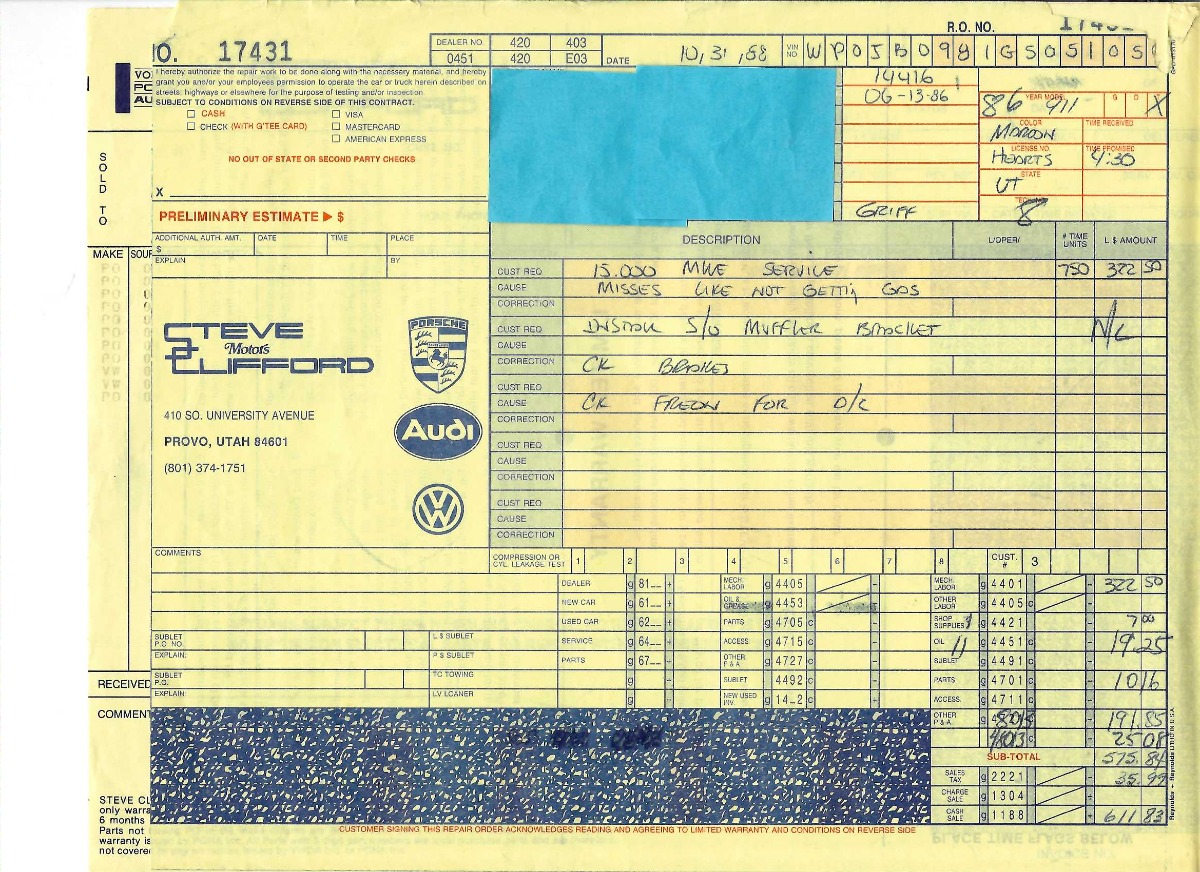 R.O. NO.
NO. 17431
DEALER NO. 420 403
0451 420 E03
DATE 10/31/88
VIN NO W P 0 J B 0 9 1 G S 0 5 1 0 5
I hereby authorize the repair work to be done along with the necessary material, and hereby
grant you and/or your employees permission to operate the car or truck herein described on
streets, highways or elsewhere for the purpose of testing and/or inspection.
SUBJECT TO CONDITIONS ON REVERSE SIDE OF THIS CONTRACT.
CASH VISA
CHECK (WITH G'TEE CARD) MASTERCARD
AMERICAN EXPRESS
NO OUT OF STATE OR SECOND PARTY CHECKS
X
PRELIMINARY ESTIMATE ► $
14416
06-13-86
GRIFF
86 YEAR MODEL 911 X
COLOR TIME RECEIVED
MAROON
LICENSE NO. TIME PROMISED
HEARTS 4:30
STATE
UT
8
SOLD TO
MAKE
ADDITIONAL AUTH. AMT. DATE TIME PLACE
$
EXPLAIN BY
DESCRIPTION L/OPER/ # TIME UNITS L $ AMOUNT
CUST REQ 15.000 MILE SERVICE 750 322 50
CAUSE MISSES LIKE NOT GETTIN GAS
CORRECTION
CUST REQ INSTALL S/O MUFFLER BRACKET N/C
CAUSE
CORRECTION CK BRAKES
CUST REQ
CAUSE CK FREON FOR A/C
CORRECTION
CUST REQ
CAUSE
CORRECTION
CUST REQ
CAUSE
CORRECTION
STEVE
Motors
CLIFFORD
PORSCHE
410 SO. UNIVERSITY AVENUE
PROVO, UTAH 84601
(801) 374-1751
Audi
VW
COMMENTS
COMPRESSION OR CYL. LEAKAGE TEST 1 2 3 4 5 6 7 8 CUST. # 3
DEALER g 81-- + MECH. LABOR g 4405 - MECH. LABOR g 4401 - 322 50
NEW CAR g 61-- + OIL & GREASE g 4453 - OTHER LABOR g 4405 c -
USED CAR g 62-- + PARTS g 4705 c - SHOP SUPPLIES g 4421 - 7 00
SERVICE g 64-- + ACCESS. g 4715 c - OIL 11 g 4451 c - 19.25
PARTS g 67-- + OTHER P & A g 4727 c - SUBLET g 4491 c -
g SUBLET 4492 c - PARTS g 4701 c - 10 16
g NEW USED INV. g 14-2 c - ACCESS. g 4711 c -
OTHER P & A. g - 191.85
25 08
SUBLET P.O. NO. L $ SUBLET
EXPLAIN: P $ SUBLET
SUBLET P.O. TC TOWING
EXPLAIN: LV LOANER
RECEIVED
SUB-TOTAL 575.84
SALES TAX g 2221 - 35.99
CHARGE SALE g 1304 +
CASH SALE g 1188 + 611 83
CUSTOMER SIGNING THIS REPAIR ORDER ACKNOWLEDGES READING AND AGREEING TO LIMITED WARRANTY AND CONDITIONS ON REVERSE SIDE
STEVE CL
only warra
6 months
Parts not
warranty is
not covere